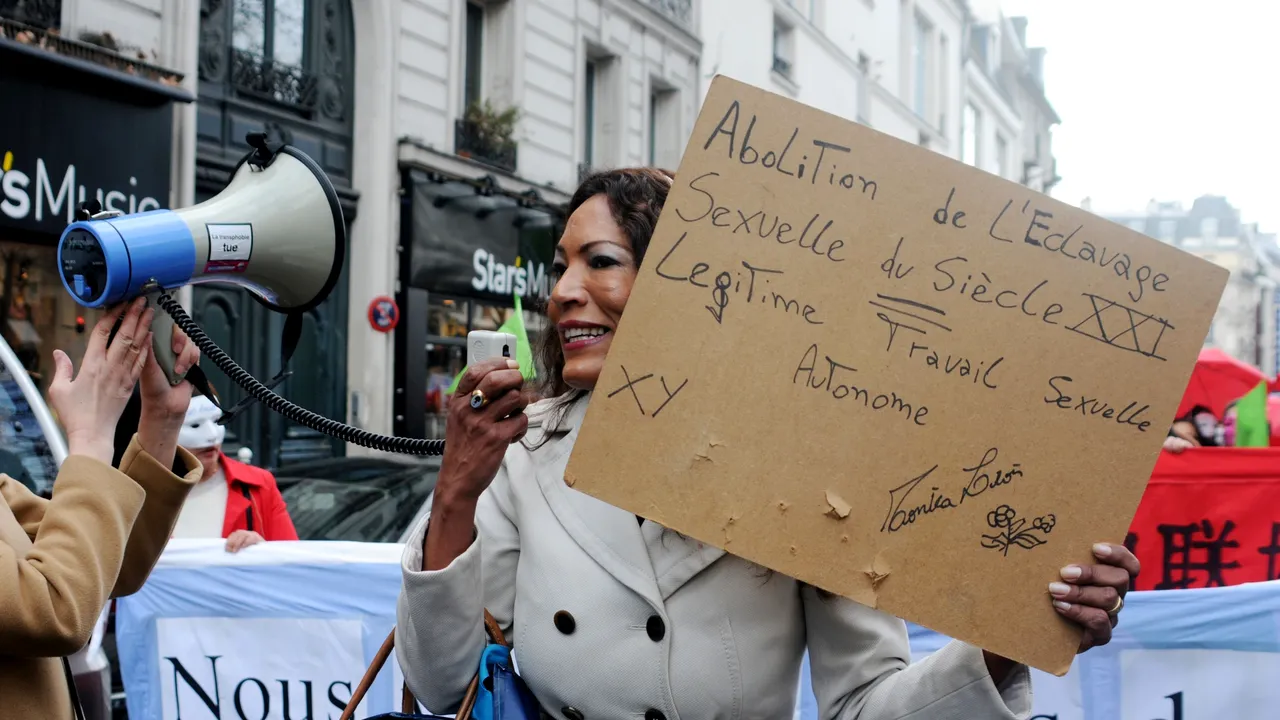 Star'sMusic
Star'sM
La transphobie
tue
AboLiTion de L'Esclavage
Sexuelle du Siècle XXI
Legitime Travail Sexuelle
Autonome
XY
Monica León
Nous
d
联